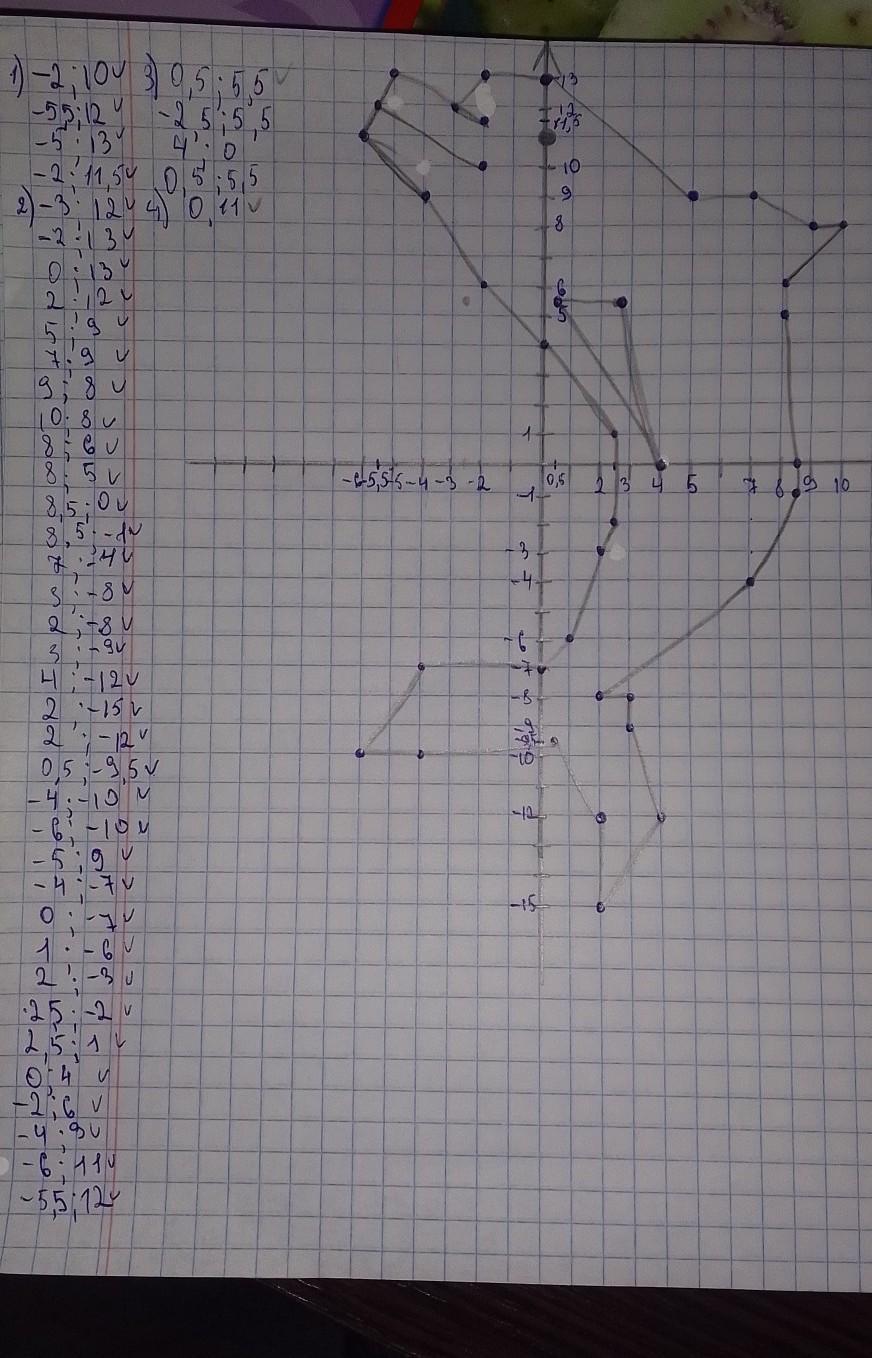 1) -2 ; 10 ✓
-5,5 ; 12 ✓
-5 ; 13 ✓
-2 ; 11,5 ✓
2) -3 ; 12 ✓
-2 ; 13 ✓
0 ; 13 ✓
2 ; 12 ✓
5 ; 9 ✓
7 ; 9 ✓
9 ; 8 ✓
10 ; 8 ✓
8 ; 6 ✓
8 ; 5 ✓
8,5 ; 0 ✓
8,5 ; -1 ✓
7 ; -4 ✓
3 ; -8 ✓
2 ; -8 ✓
3 ; -9 ✓
4 ; -12 ✓
2 ; -15 ✓
2 ; -12 ✓
0,5 ; -9,5 ✓
-4 ; -10 ✓
-6 ; -10 ✓
-5 ; 9 ✓
-4 ; -7 ✓
0 ; -7 ✓
1 ; -6 ✓
2 ; -3 ✓
2,5 ; -2 ✓
2,5 ; 1 ✓
0 ; 4 ✓
-2 ; 6 ✓
-4 ; 9 ✓
-6 ; 11 ✓
-5,5 ; 12 ✓
3) 0,5 ; 5,5 ✓
-2,5 ; 5,5
4 ; 0
0,5 ; 5,5
4) 0,11 ✓
13
12
11,5
10
9
8
6
5
1
-6 -5,5 -5 -4 -3 -2 0,5 2 3 4 5 7 8 9 10
-1
-3
-4
-6
-7
-8
-9
-9,5
-10
-12
-15